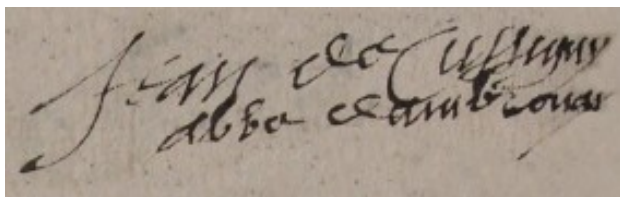 Jean de Cussigny
abbe d'ambronay